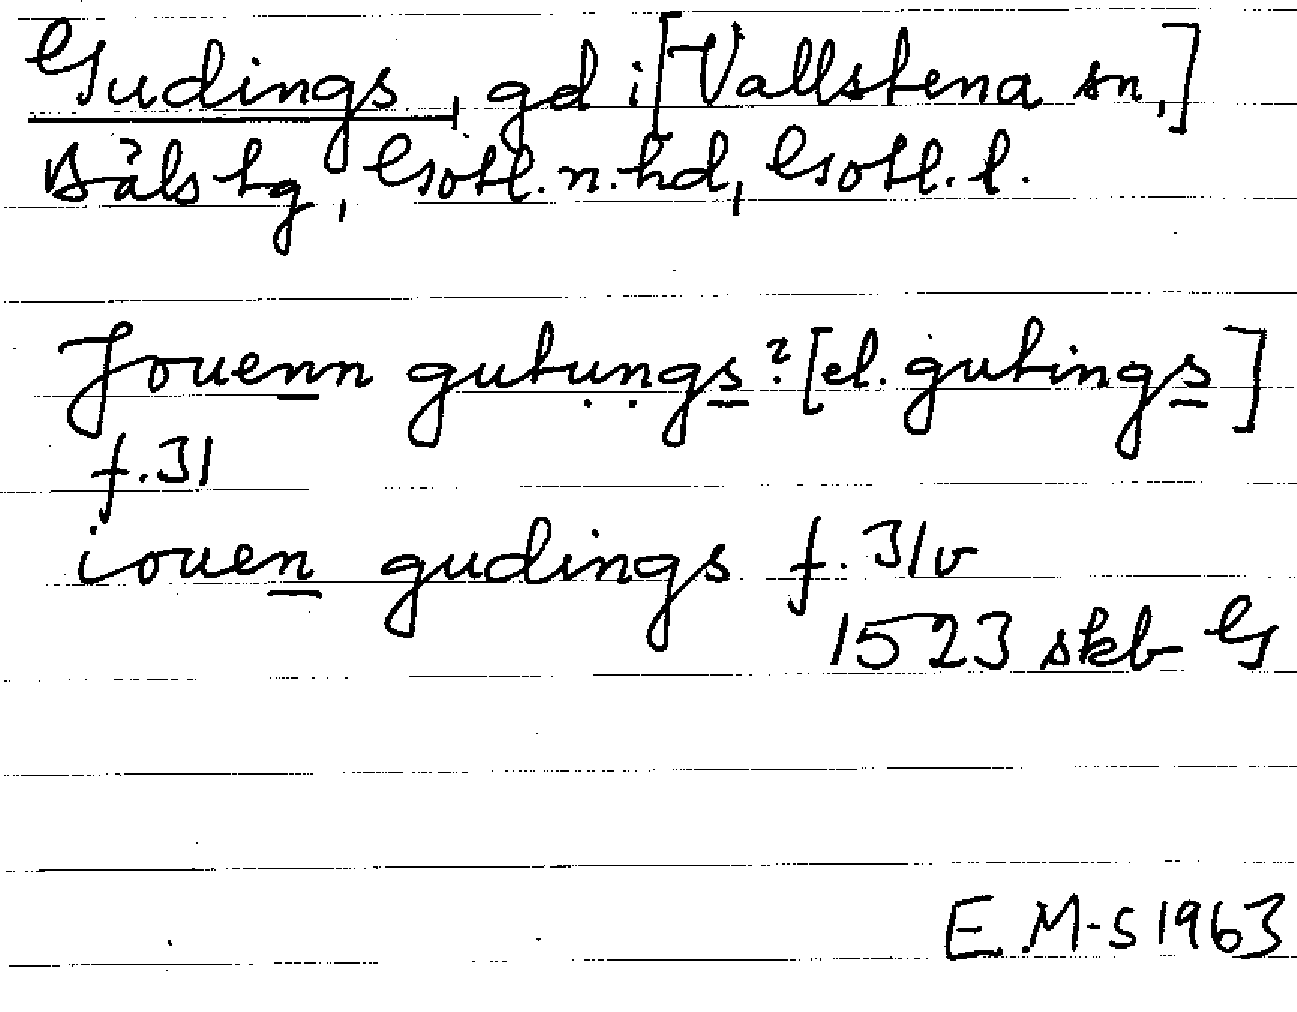 Gudings, gd i [Vallstena sn,]
Bäls tg, Gotl. n. hd, Gotl. l.
Jouenn gutungs? [el. gutings]
f. 31
iouen gudings f. 31v
1523 skb G
E.M-S 1963